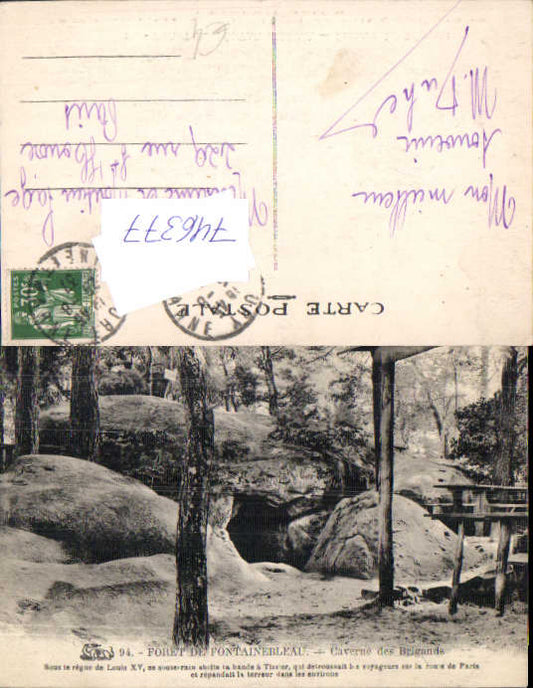 CARTE POSTALE
Mon meilleur
souvenir
M. Duhe
Madame et Monsieur
229, rue St Honoré
Paris
746377
POSTES
94. - FORÊT DE FONTAINEBLEAU. - Caverne des Brigands
Sous le règne de Louis XV, ce souterrain abrita la bande à Tissier, qui détroussait les voyageurs sur la route de Paris
et répandait la terreur dans les environs